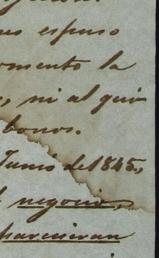 espuso
omento la
, ni al qui
bonos.
Junio de 1845,
negocio,
parecieran